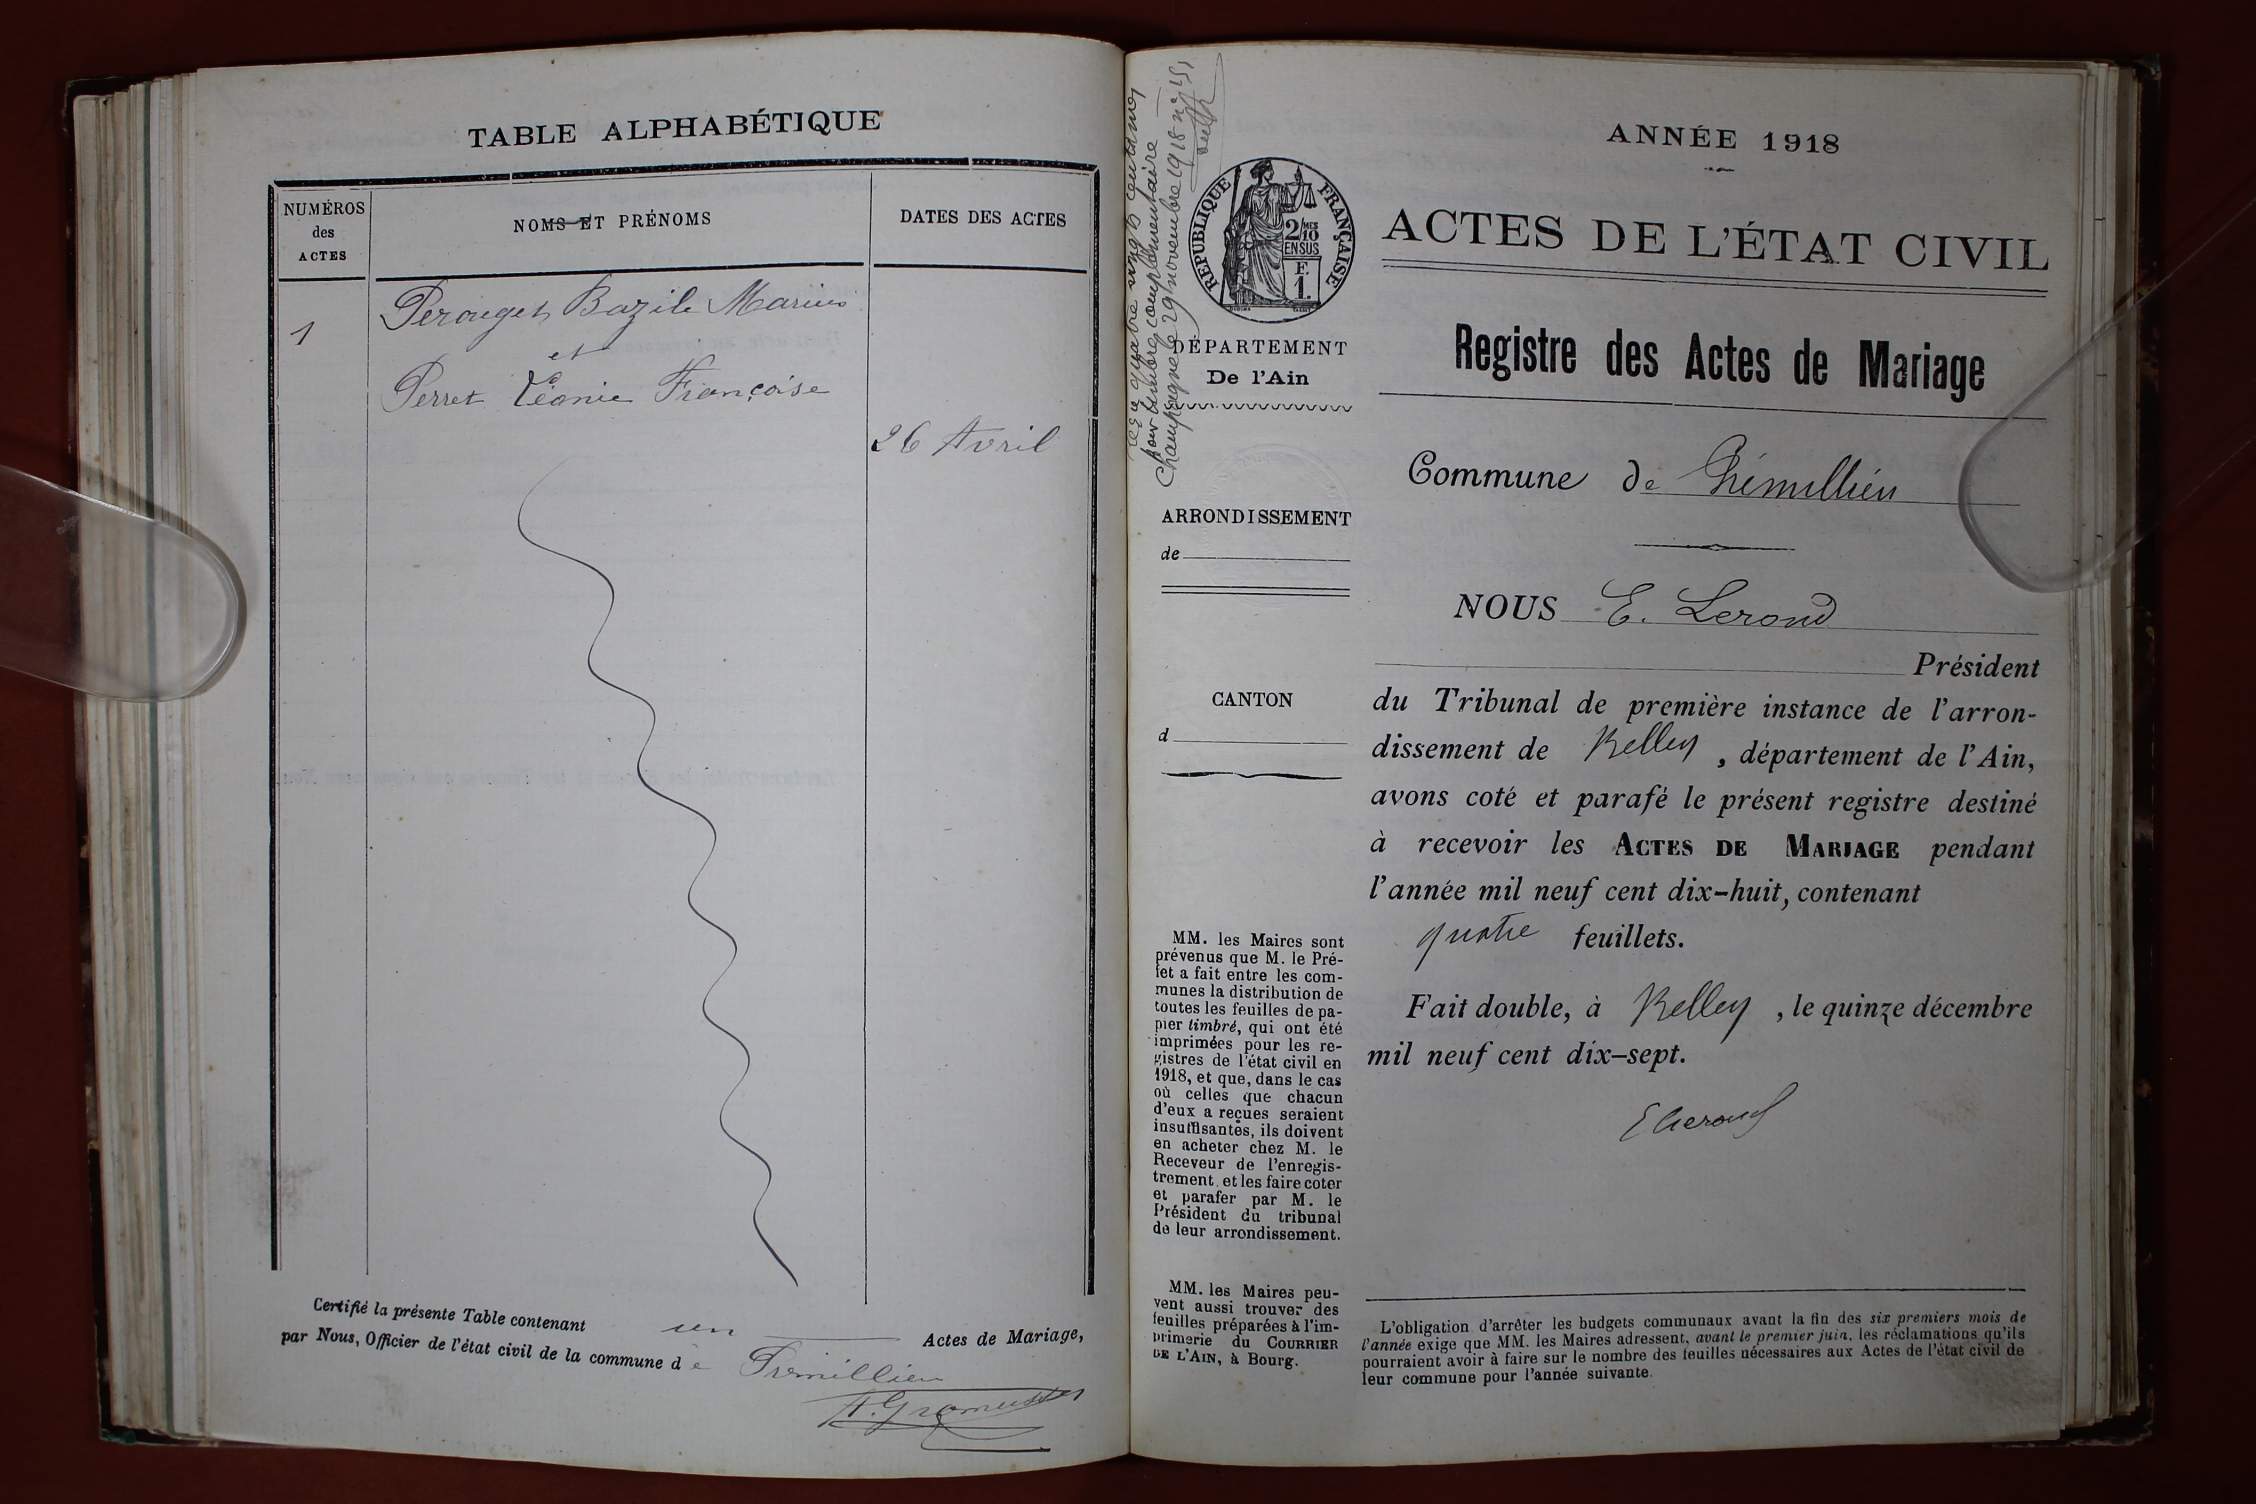 TABLE ALPHABÉTIQUE
NUMÉROS
des
ACTES
NOMS ET PRÉNOMS
DATES DES ACTES
1
Perouget Bazile Marius
et
Perret Léonie Françoise
26 Avril
Certifié la présente Table contenant un Actes de Mariage,
par Nous, Officier de l'état civil de la commune de Prémillieu
ANNÉE 1918
ACTES DE L'ÉTAT CIVIL
Registre des Actes de Mariage
Commune de Prémillieu
NOUS E. Lerond
Président
du Tribunal de première instance de l'arron-
dissement de Belley, département de l'Ain,
avons coté et parafé le présent registre destiné
à recevoir les ACTES DE MARIAGE pendant
l'année mil neuf cent dix-huit, contenant
quatre feuillets.
Fait double, à Belley, le quinze décembre
mil neuf cent dix-sept.
E Lerond
L'obligation d'arrêter les budgets communaux avant la fin des six premiers mois de
l'année exige que MM. les Maires adressent, avant le premier juin, les réclamations qu'ils
pourraient avoir à faire sur le nombre des feuilles nécessaires aux Actes de l'état civil de
leur commune pour l'année suivante.
quatre vingts centimes
pour timbre complémentaire
Champagne le 29 novembre 1918 n° 151
RÉPUBLIQUE FRANÇAISE
2/10 MES
EN SUS
F.
1.
DÉPARTEMENT
De l'Ain
ARRONDISSEMENT
de
CANTON
d
MM. les Maires sont
prévenus que M. le Pré-
fet a fait entre les com-
munes la distribution de
toutes les feuilles de pa-
pier timbré, qui ont été
imprimées pour les re-
gistres de l'état civil en
1918, et que, dans le cas
où celles que chacun
d'eux a reçues seraient
insuffisantes, ils doivent
en acheter chez M. le
Receveur de l'enregis-
trement, et les faire coter
et parafer par M. le
Président du tribunal
de leur arrondissement.
MM. les Maires peu-
vent aussi trouver des
feuilles préparées à l'im-
primerie du COURRIER
DE L'AIN, à Bourg.